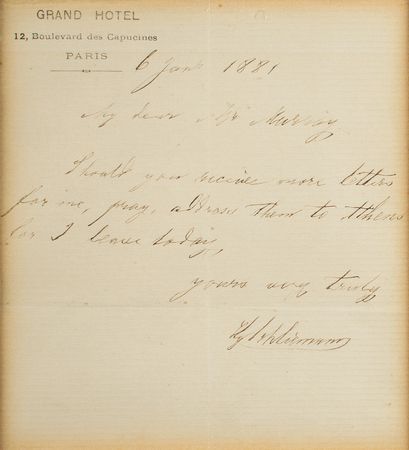 GRAND HOTEL
12, Boulevard des Capucines
PARIS
6 Jany 1881
My dear Mr Murray,
Should you receive more letters
for me, pray, address them to Athens
for I leave today,
yours very truly
Hy Schliemann